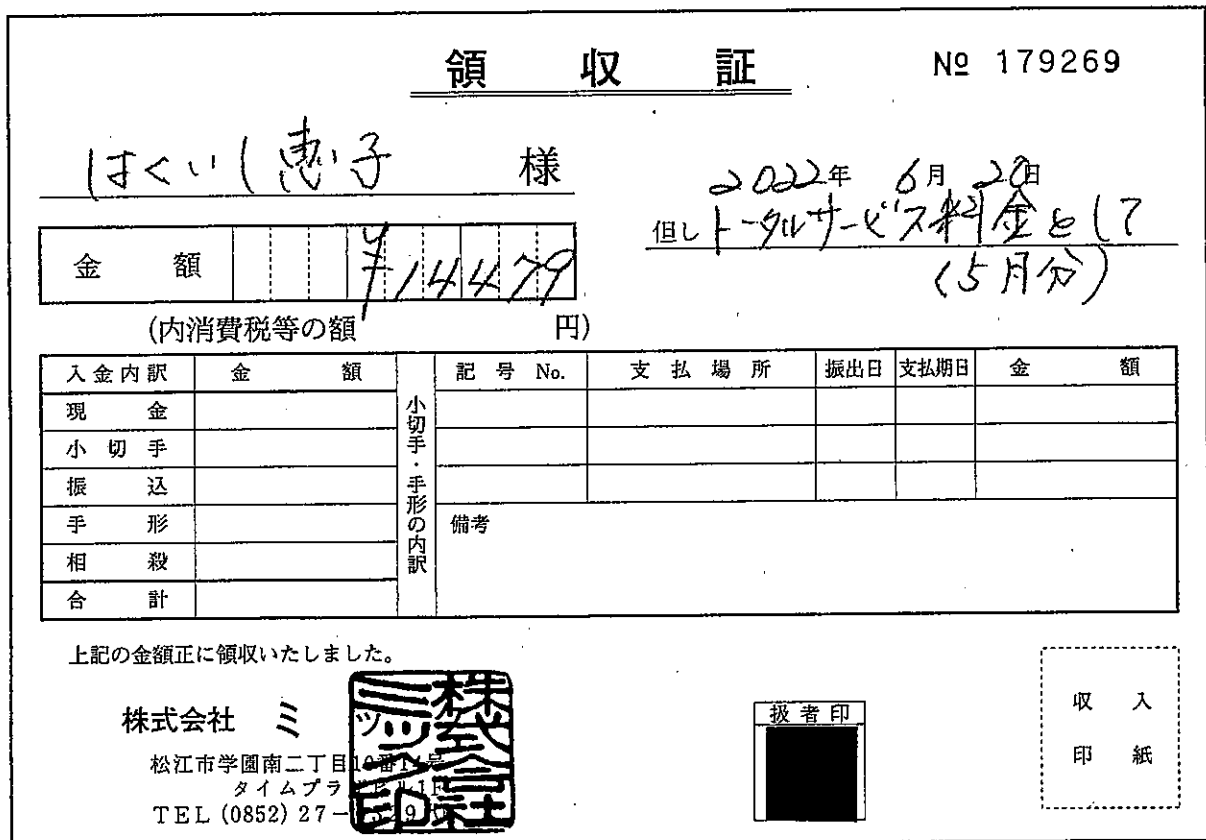 領収証
№ 179269
はくいし恵子 様
2022年 6月 20日
但し トータルサービス料金として
(5月分)
金額 ¥14479
(内消費税等の額 円)
入金内訳 金額 小切手・手形の内訳 記号 No. 支払場所 振出日 支払期日 金額
現金
小切手
振込
手形 備考
相殺
合計
上記の金額正に領収いたしました。
株式会社 ミツ
松江市学園南二丁目
タイムプラ
TEL (0852) 27-
扱者印
収入
印紙